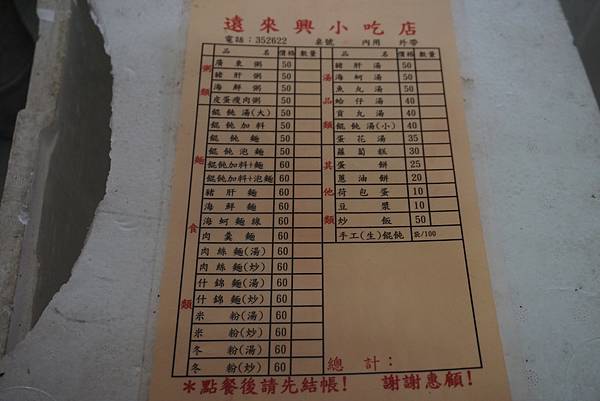 遠來興小吃店
電話：352622 桌號 內用 外帶
品名 價格 數量 品名 價格 數量
粥類
廣東粥 50
豬肝粥 50
海鮮粥 50
皮蛋瘦肉粥 50
麵食類
餛飩湯(大) 50
餛飩加料 50
餛飩麵 50
餛飩泡麵 50
餛飩加料+麵 60
餛飩加料+泡麵 60
豬肝麵 60
海鮮麵 60
海蚵麵線 60
肉羹麵 60
肉絲麵(湯) 60
肉絲麵(炒) 60
什錦麵(湯) 60
什錦麵(炒) 60
米粉(湯) 60
米粉(炒) 60
冬粉(湯) 60
冬粉(炒) 60
湯品類
豬肝湯 50
海蚵湯 50
魚丸湯 50
蛤仔湯 40
貢丸湯 40
餛飩湯(小) 40
蛋花湯 35
其他類
蘿蔔糕 30
蛋餅 25
蔥油餅 20
荷包蛋 10
豆漿 10
炒飯 50
手工(生)餛飩 包/100
總計：
*點餐後請先結帳! 謝謝惠顧!